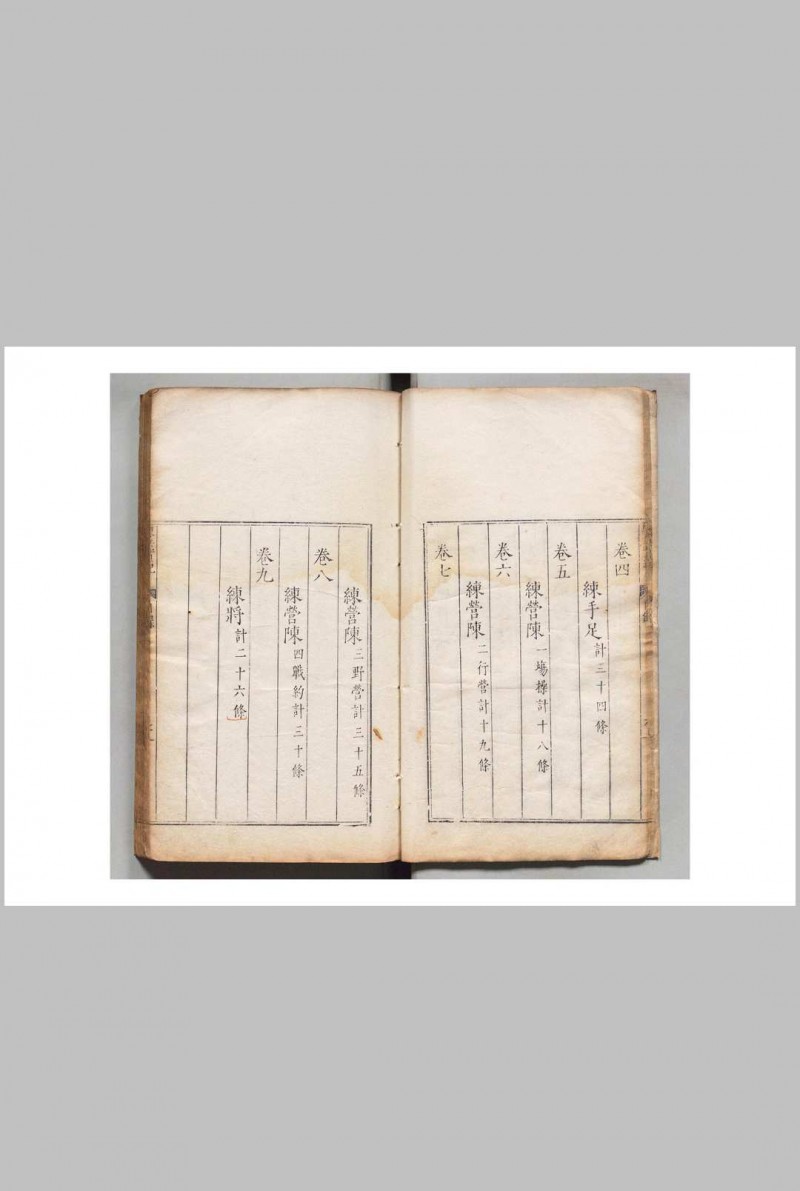 卷四
練手足計三十四條
卷五
練營陳一場操計十八條
卷六
練營陳二行營計十九條
卷七
練營陳三野營計三十五條
卷八
練營陳四戰約計三十條
卷九
練將計二十六條